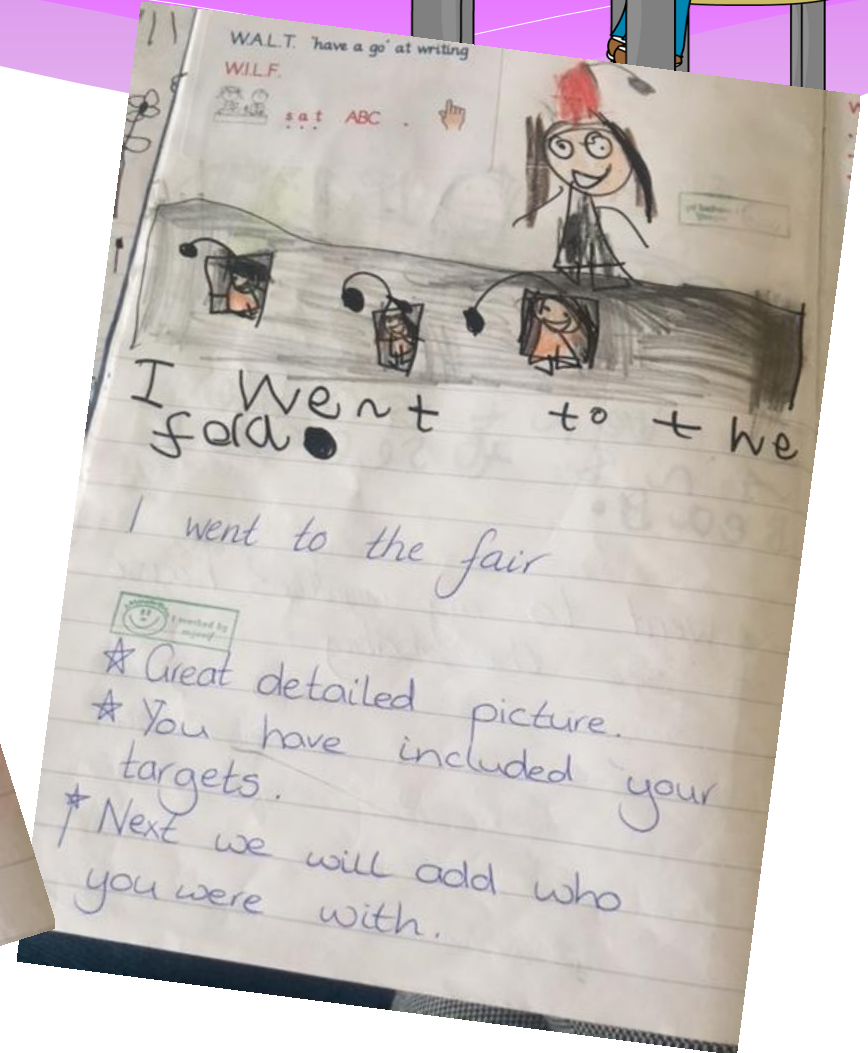 W.A.L.T. 'have a go' at writing
W.I.L.F.
s a t ABC .
I went to the
fara.
I went to the fair
I worked by
myself
Great detailed picture.
You have included your
targets.
Next we will add who
you were with.